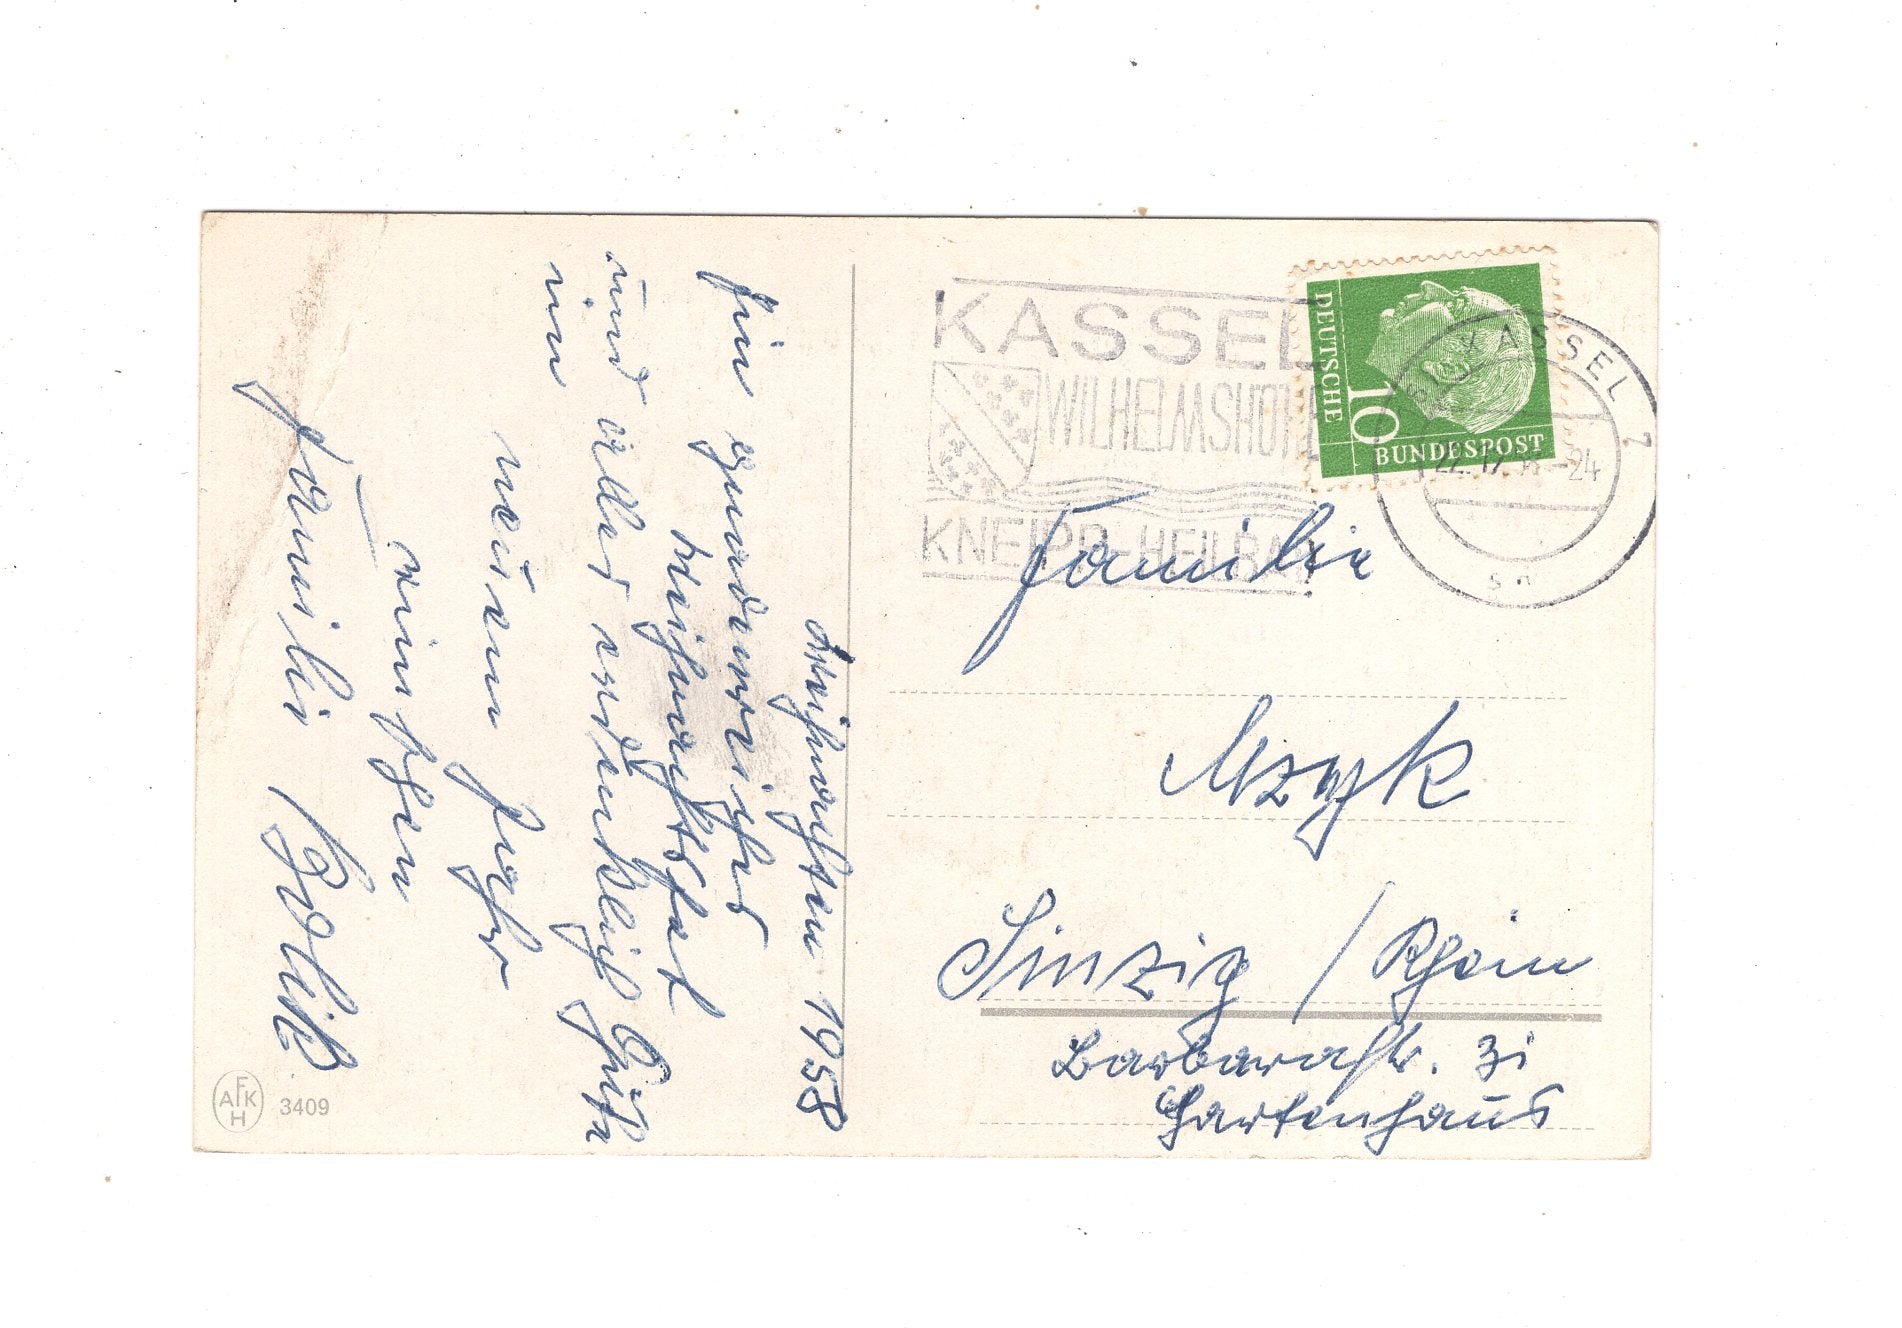 Weihnachten 1958
Ein gnadenreiches
Weihnachtsfest
und alles erdenklich Gute
im
neuen Jahr
wünschen
Familie
KASSEL
WILHELMSHÖHE
KNEIPP-HEILBAD
DEUTSCHE
10
BUNDESPOST
KASSEL 7
22.12.58-24
Familie
Mzyk
Sinzig / Rhein
Barbarastr. 31
Gartenhaus
AFKH 3409